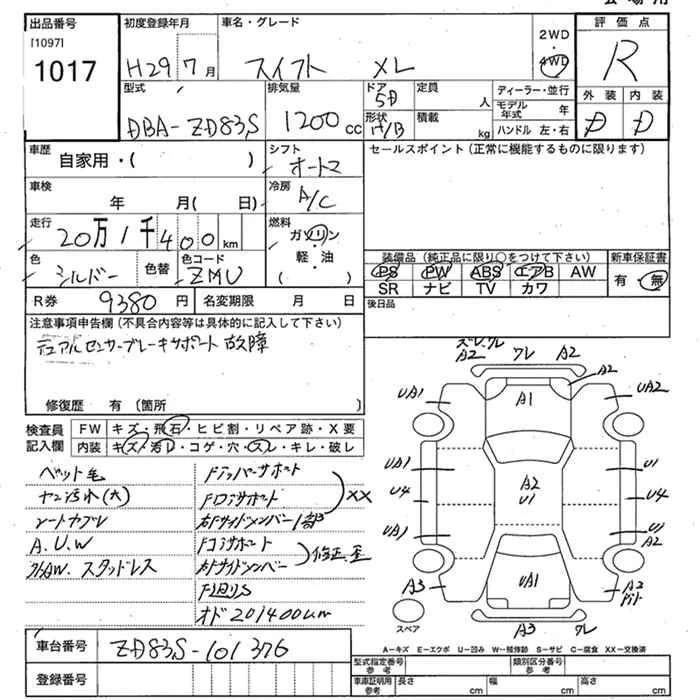 会場用
出品番号 初度登録年月 車名・グレード 2WD 評価点
[1097] 4WD
1017 H29 7月 スイフト XL R
型式 排気量 ドア 定員 ディーラー・並行 外装 内装
5D 人 モデル年式 年
DBA-ZD83S 1200cc 形状 H/B 積載 kg ハンドル 左・右 D D
車歴 シフト セールスポイント(正常に機能するものに限ります)
自家用・( ) オートマ
車検 冷房
年 月( 日) A/C
走行 燃料
20万1千400km ガソリン
・
軽・油
( )
色 色替 色コード 装備品(純正品に限り○をつけて下さい) 新車保証書
シルバー ZMU PS PW ABS エアB AW 有・無
SR ナビ TV カワ
R券 9380円 名変期限 月 日 後日品
注意事項申告欄(不具合内容等は具体的に記入して下さい)
デュアルセンサーブレーキサポート故障
修復歴 有(箇所
検査員記入欄
FW キズ・飛石・ヒビ割・リペア跡・X要
内装 キズ・汚レ・コゲ・穴・スレ・キレ・破レ
ペット毛
ヤニ汚れ(大)
シートカブレ
A.U.W
社外AW.スタッドレス
Fアッパーサポート
Fロアサポート
右Fサイドメンバー1部
XX
Fコアサポート
右Fサイドメンバー
修正.歪
F廻りS
オド201400km
A2 ワレ A2
A2
UA1 A1 UA2
UA1 A2 U1
U4 U1 U4
UA1 U1
A2
A3 UA1 A3
スペア A3 ワレ
A−キズ E−エクボ U−凹み W−補修跡 S−サビ C−腐食 XX−交換済
車台番号 ZD83S-101376
登録番号
型式指定番号 参考 類別区分番号 参考
車庫証明用 参考 長さ cm 幅 cm 高さ cm